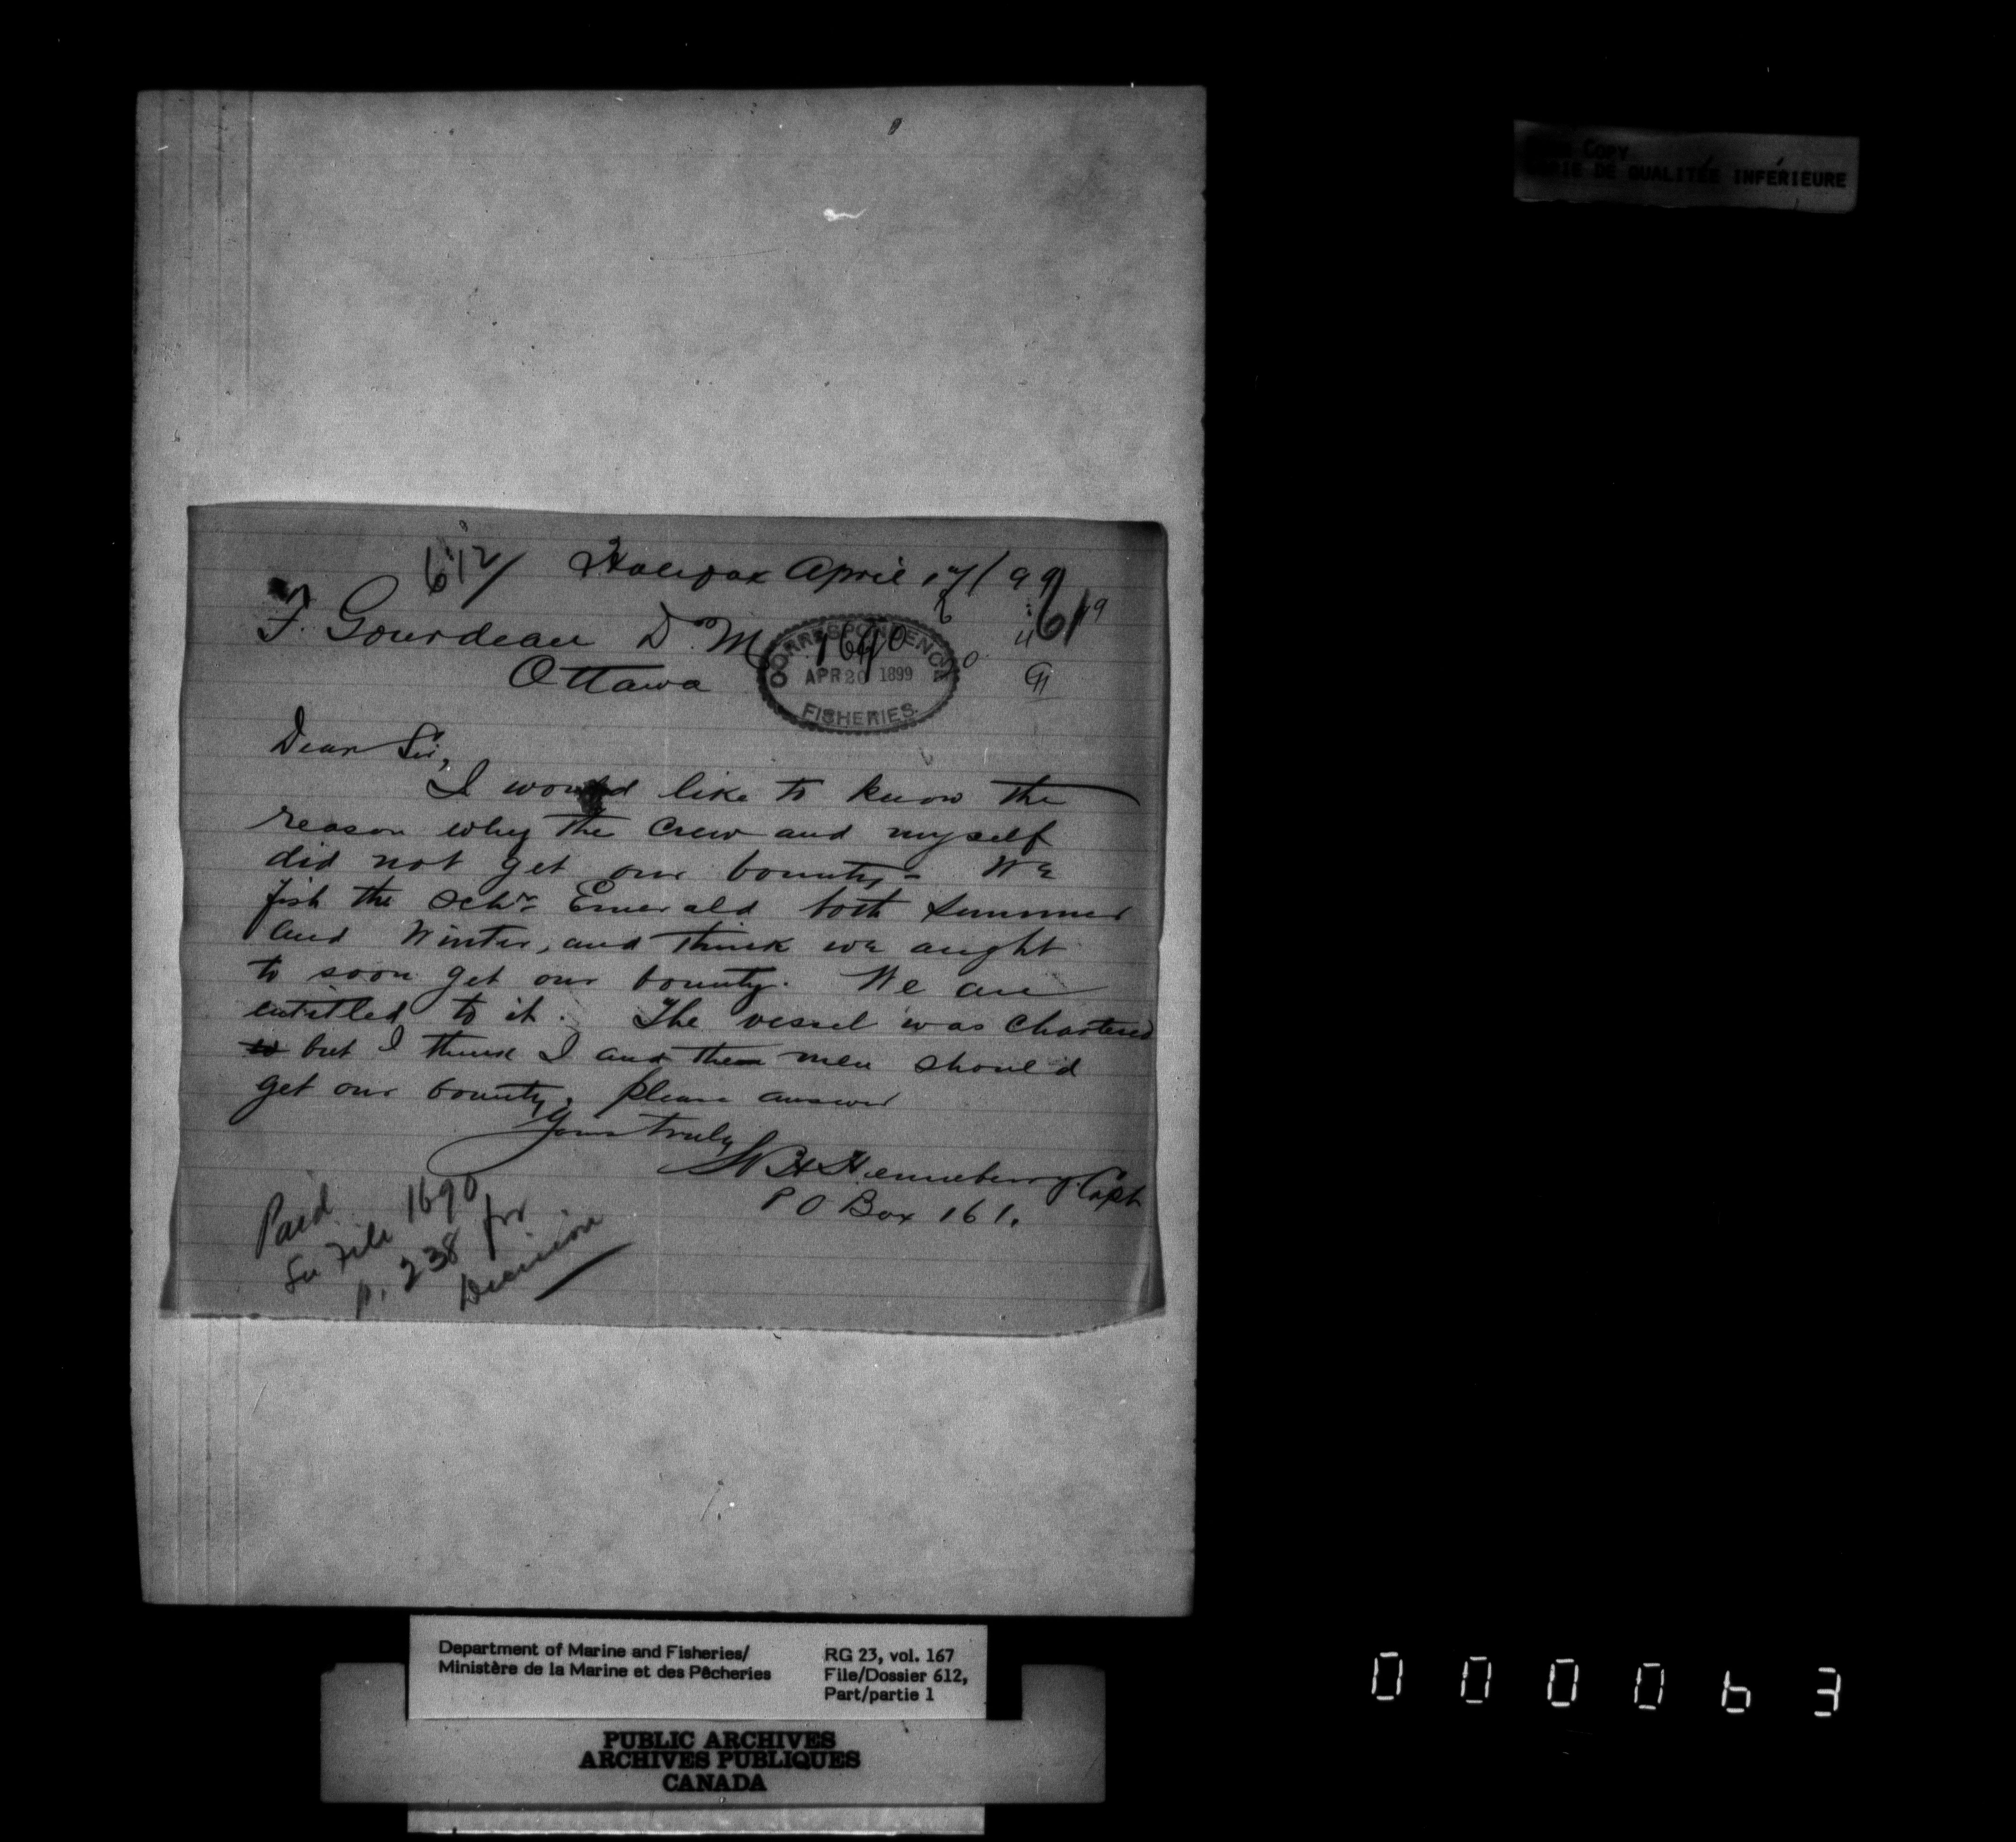 COPY
COPIE DE QUALITÉE INFÉRIEURE
612/ Halifax April 17/99
61
F. Gourdeau D. M.
Ottawa
CORRESPONDENCE
1690
APR 20 1899
FISHERIES
Dear Sir,
I would like to know the
reason why the Crew and myself
did not get our bounty - We
fish the Schr Emerald both Summer
and Winter, and think we aught
to soon get our bounty. We are
entitled to it. The vessel was Chartered
but I think I and the men should
get our bounty. please answer
Yours truly
W H Henneberry Capt
P O Box 161.
Paid
See File 1690
p. 238 for
Decision
Department of Marine and Fisheries/
Ministère de la Marine et des Pêcheries
RG 23, vol. 167
File/Dossier 612,
Part/partie 1
PUBLIC ARCHIVES
ARCHIVES PUBLIQUES
CANADA
000063